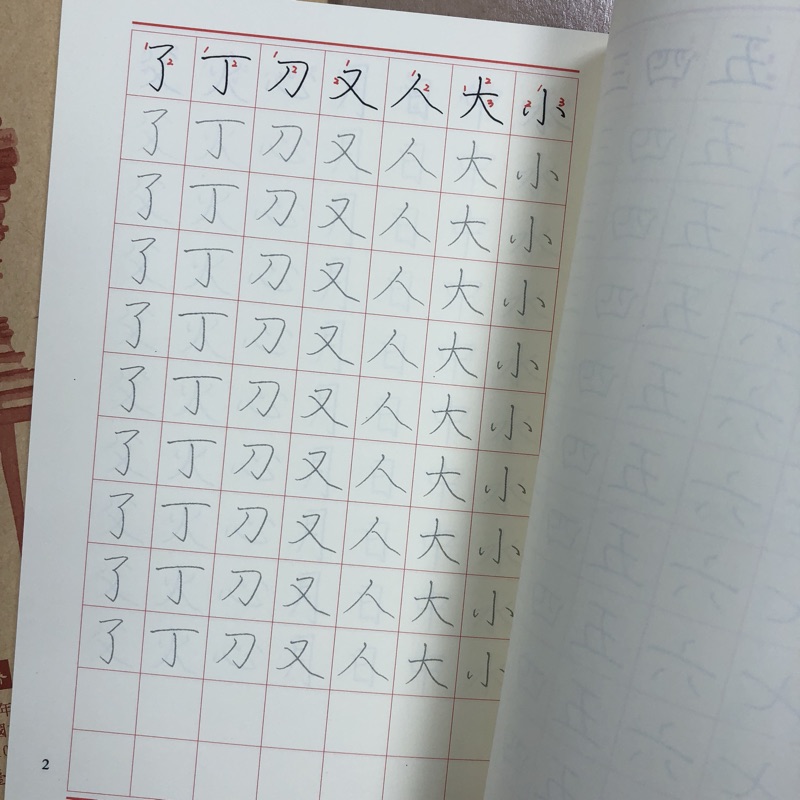 了丁刀又人大小
了丁刀又人大小
了丁刀又人大小
了丁刀又人大小
了丁刀又人大小
了丁刀又人大小
了丁刀又人大小
了丁刀又人大小
了丁刀又人大小
了丁刀又人大小
2